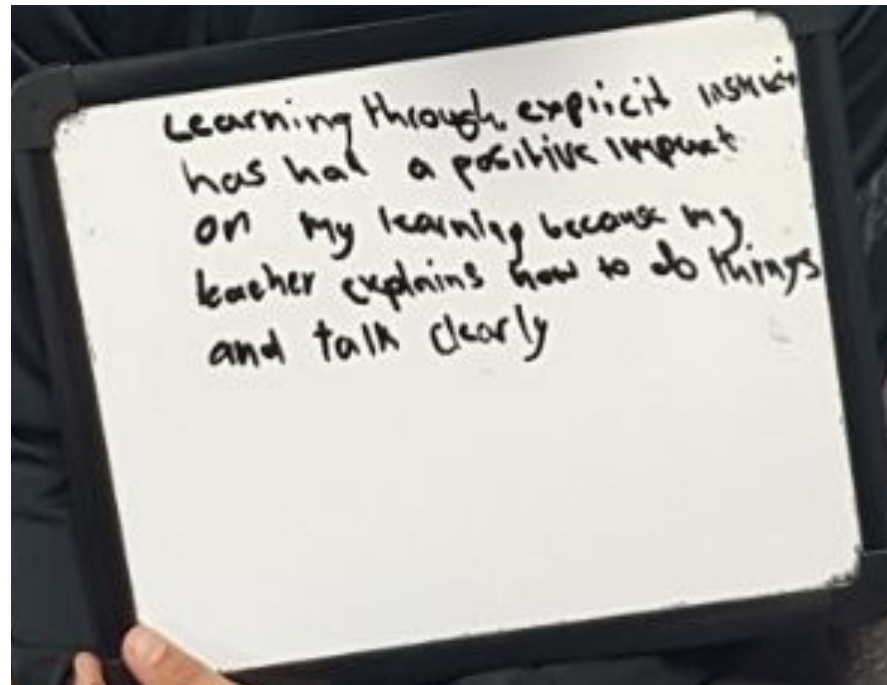 Learning through explicit
has had a positive impact
on my learning because my
teacher explains how to do things
and talk clearly